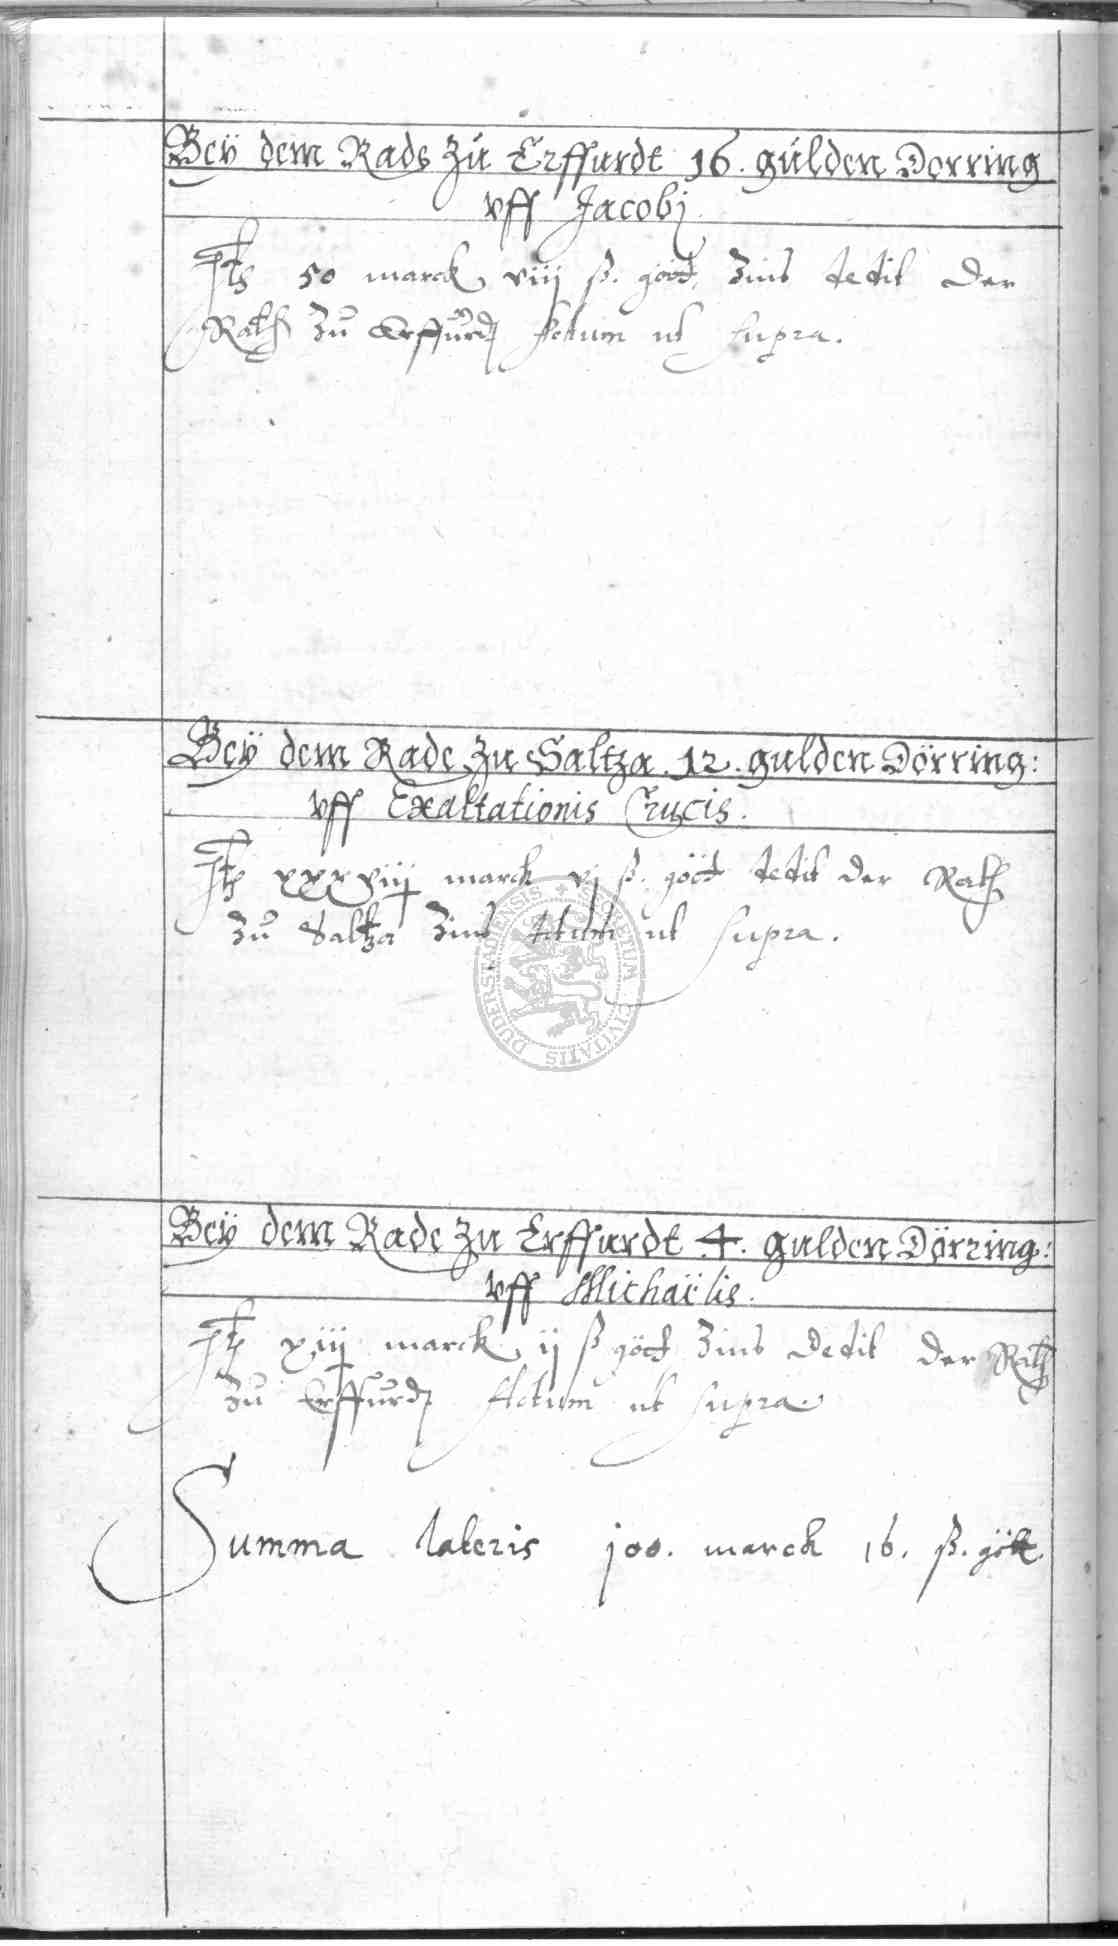 Bey dem Rade zu Erffurdt 16. gulden Dorring
vff Jacobj
It 50 marck viij ß. gött. Zins dedit der
Rath zu Erffurd Actum ut supra.
Bey dem Rade zu Saltza. 12. gulden Dörring:
vff Exaltationis Crucis.
It xxxviij marck vj ß. gött dedit der Rath
zu Saltza Zins Actum ut supra.
SECRETUM CIVITATIS DUDERSTADIENSIS
Bey dem Rade zu Erffurdt 4. gulden Dörring:
vff Michaëlis.
It xiij marck ij ß gött Zins dedit der Rath
zu Erffurd Actum ut supra.
Summa lateris 100. marck 16. ß. gött.